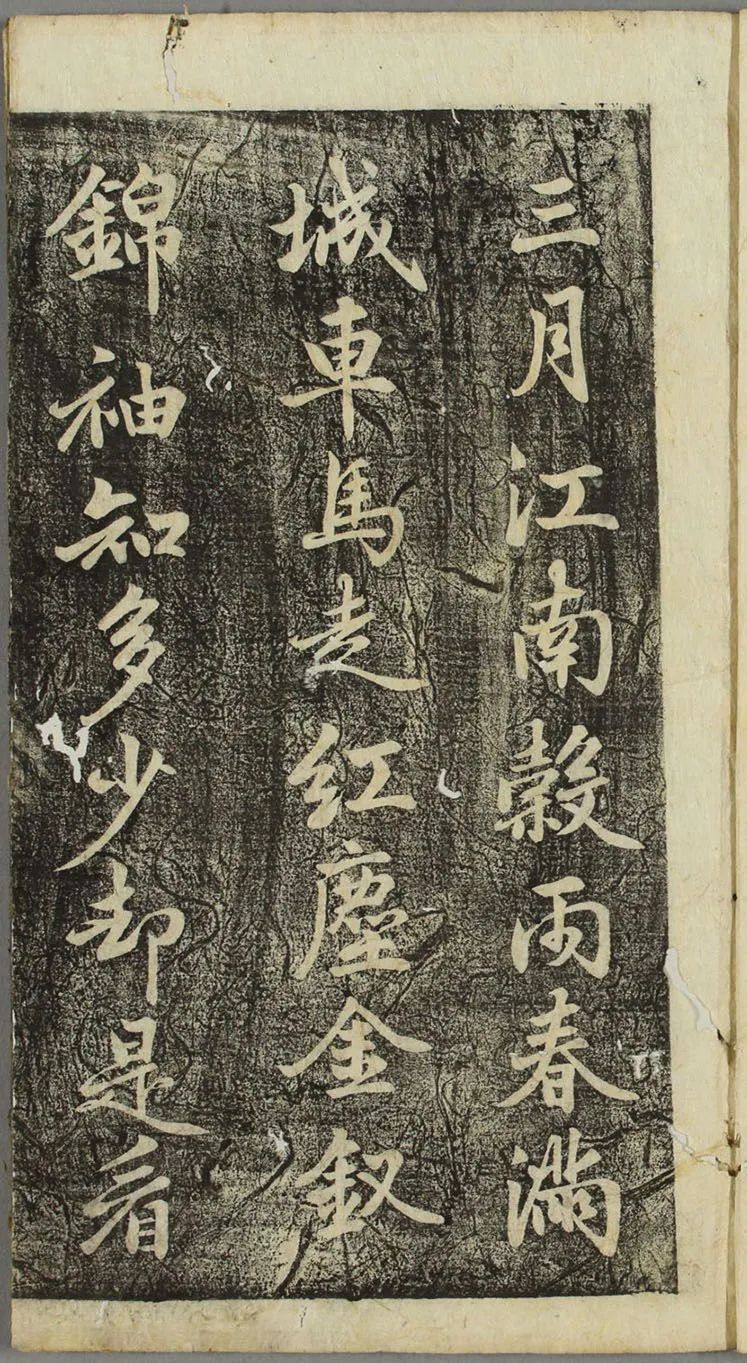 三月江南穀雨春滿
城車馬走紅塵金釵
錦袖知多少却是看